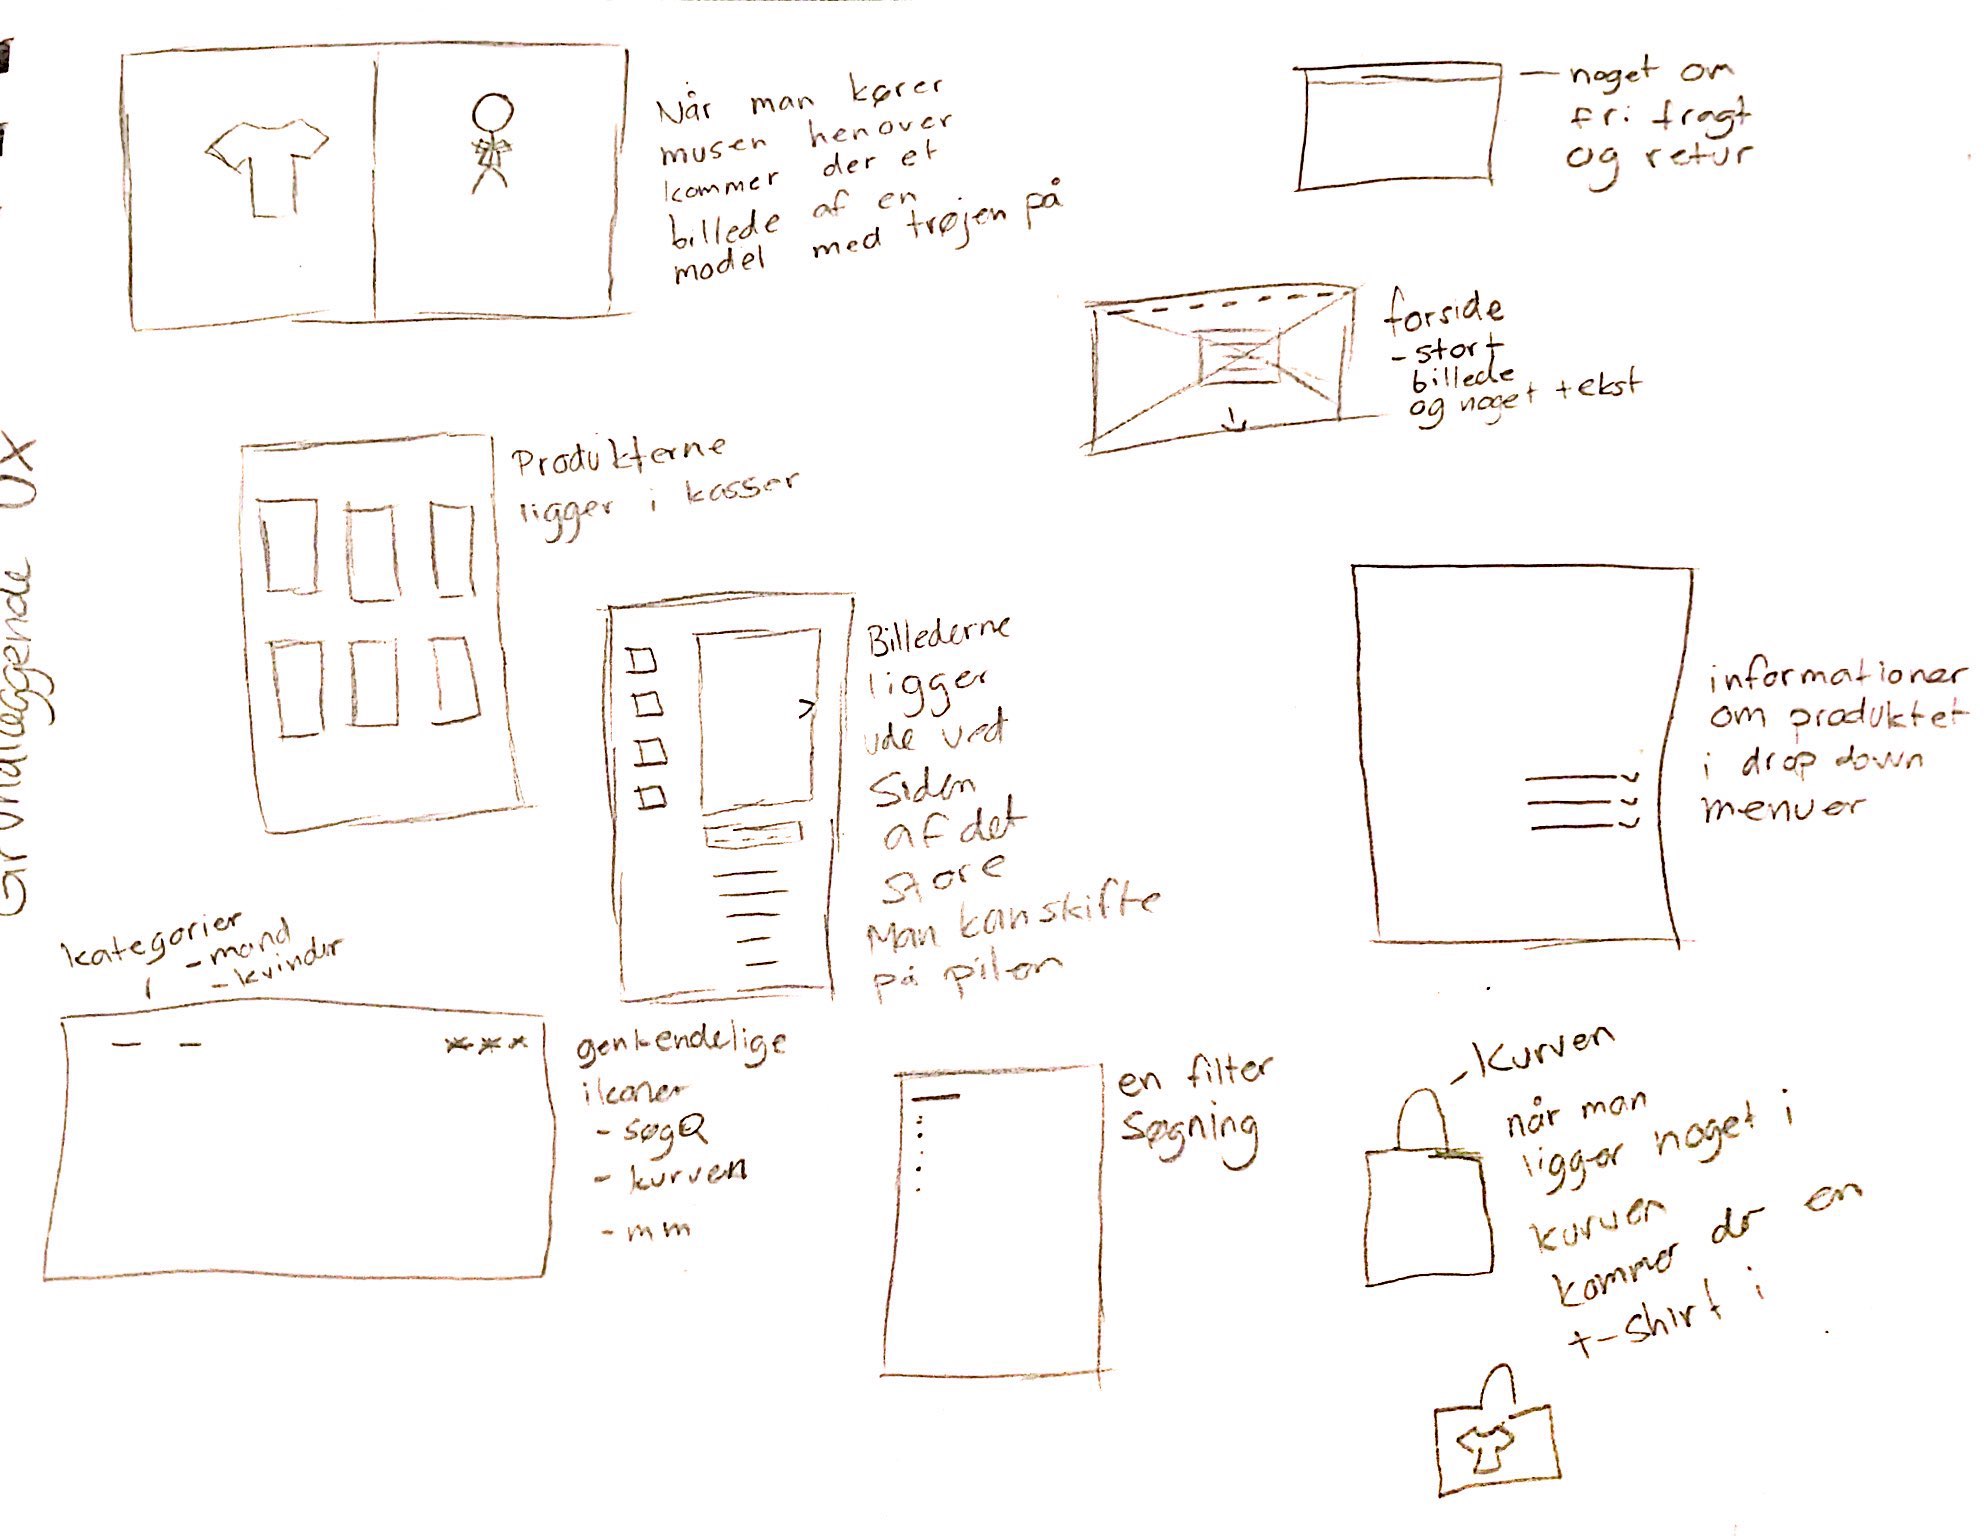 Grundlæggende UX
Når man kører
musen henover
kommer der et
billede af en
model med trøjen på
— noget om
fri fragt
og retur
forside
- stort
billede
og noget tekst
Produkterne
ligger i kasser
Billederne
ligger
ude ved
siden
af det
store
Man kan skifte
på pilen
informationer
om produktet
i drop down
menuer
kategorier
- mand
- kvinder
genkendelige
ikoner
- søg
- kurven
- mm
en filter
søgning
Kurven
når man
ligger noget i
kurven
kommer der en
t-shirt i